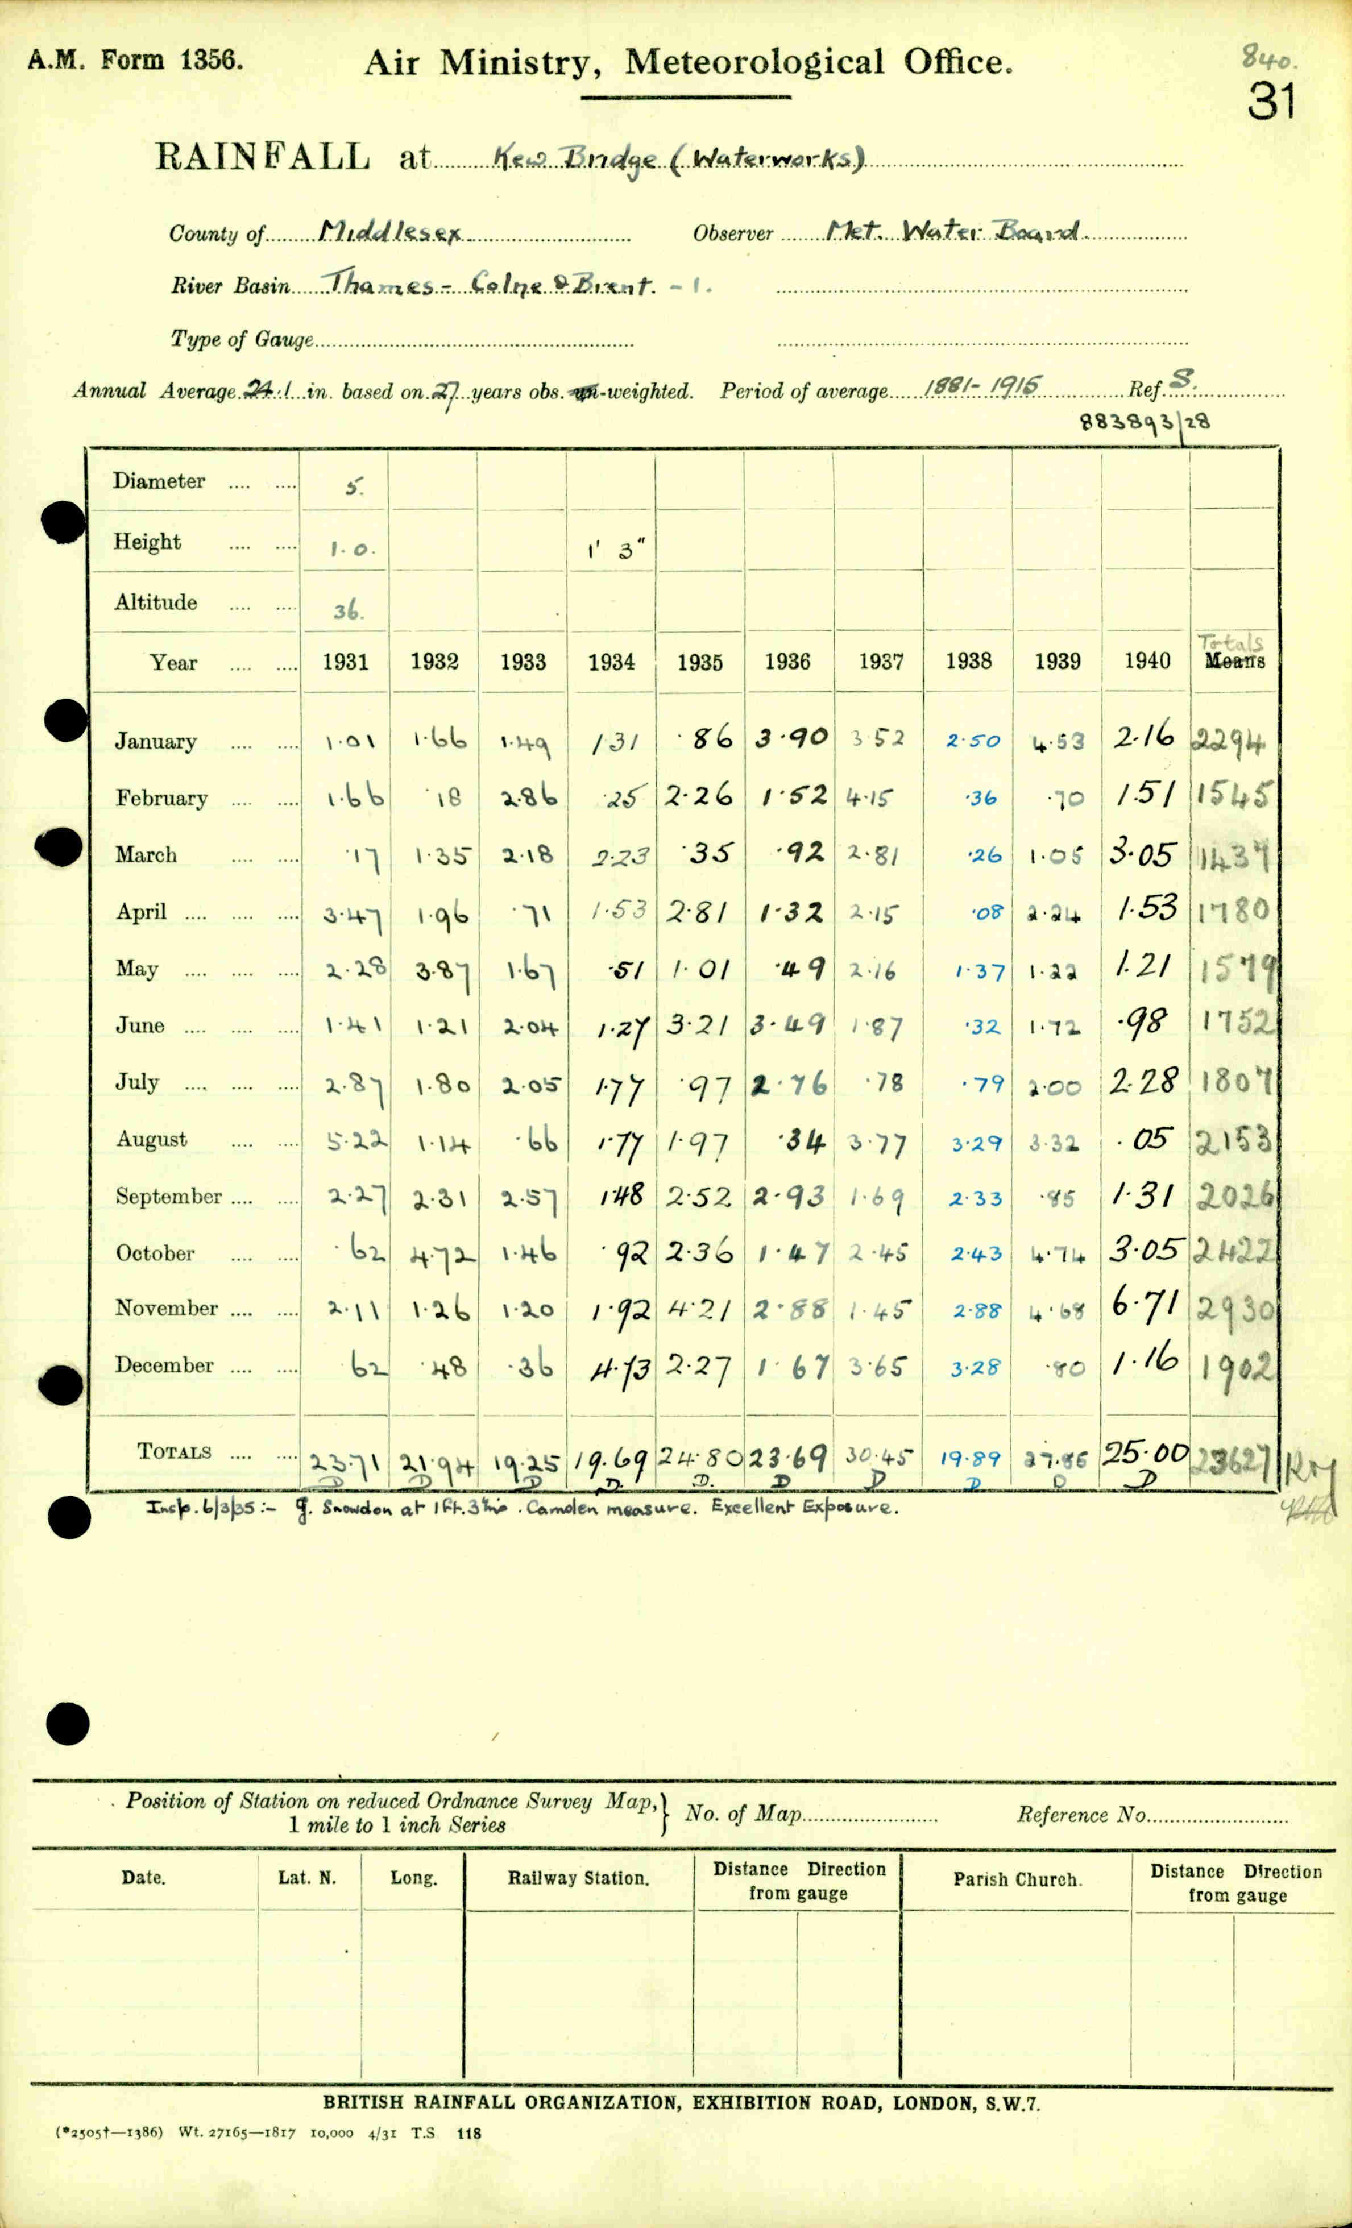 A.M. Form 1356.
Air Ministry, Meteorological Office.
840.
31
RAINFALL at Kew Bridge (Waterworks)
County of Middlesex Observer Met. Water Board.
River Basin Thames - Colne & Brent. - 1.
Type of Gauge
Annual Average 24.1 in. based on 27 years obs. un-weighted. Period of average 1881-1915 Ref. S.
883893/28
Diameter .... .... 5.
Height .... .... 1.0. 1' 3"
Altitude .... .... 36.
Totals
Year .... .... 1931 1932 1933 1934 1935 1936 1937 1938 1939 1940 Means
January .... .... 1.01 1.66 1.49 1.31 .86 3.90 3.52 2.50 4.53 2.16 2294
February .... .... 1.66 .18 2.86 .25 2.26 1.52 4.15 .36 .70 1.51 1545
March .... .... .17 1.35 2.18 2.23 .35 .92 2.81 .26 1.05 3.05 1437
April .... .... .... 3.47 1.96 .71 1.53 2.81 1.32 2.15 .08 2.24 1.53 1780
May .... .... .... 2.28 3.87 1.67 .51 1.01 .49 2.16 1.37 1.22 1.21 1579
June .... .... .... 1.41 1.21 2.04 1.27 3.21 3.49 1.87 .32 1.72 .98 1752
July .... .... .... 2.87 1.80 2.05 1.77 .97 2.76 .78 .79 2.00 2.28 1807
August .... .... 5.22 1.14 .66 1.77 1.97 .34 3.77 3.29 3.32 .05 2153
September .... .... 2.27 2.31 2.57 1.48 2.52 2.93 1.69 2.33 .85 1.31 2026
October .... .... .62 4.72 1.46 .92 2.36 1.47 2.45 2.43 4.74 3.05 2422
November .... .... 2.11 1.26 1.20 1.92 4.21 2.88 1.45 2.88 4.68 6.71 2930
December .... .... 62 .48 .36 4.73 2.27 1.67 3.65 3.28 .80 1.16 1902
TOTALS .... .... 23.71 21.94 19.25 19.69 24.80 23.69 30.45 19.89 27.85 25.00 23627
D D D D. D. D D D D D
Insp. 6/3/35:- g. Snowdon at 1ft. 3ins. Camden measure. Excellent Exposure.
Position of Station on reduced Ordnance Survey Map,} No. of Map Reference No.
1 mile to 1 inch Series
Date. Lat. N. Long. Railway Station. Distance Direction from gauge Parish Church. Distance Direction from gauge
BRITISH RAINFALL ORGANIZATION, EXHIBITION ROAD, LONDON, S.W.7.
(*2505†—1386) Wt. 27165—1817 10,000 4/31 T.S 118